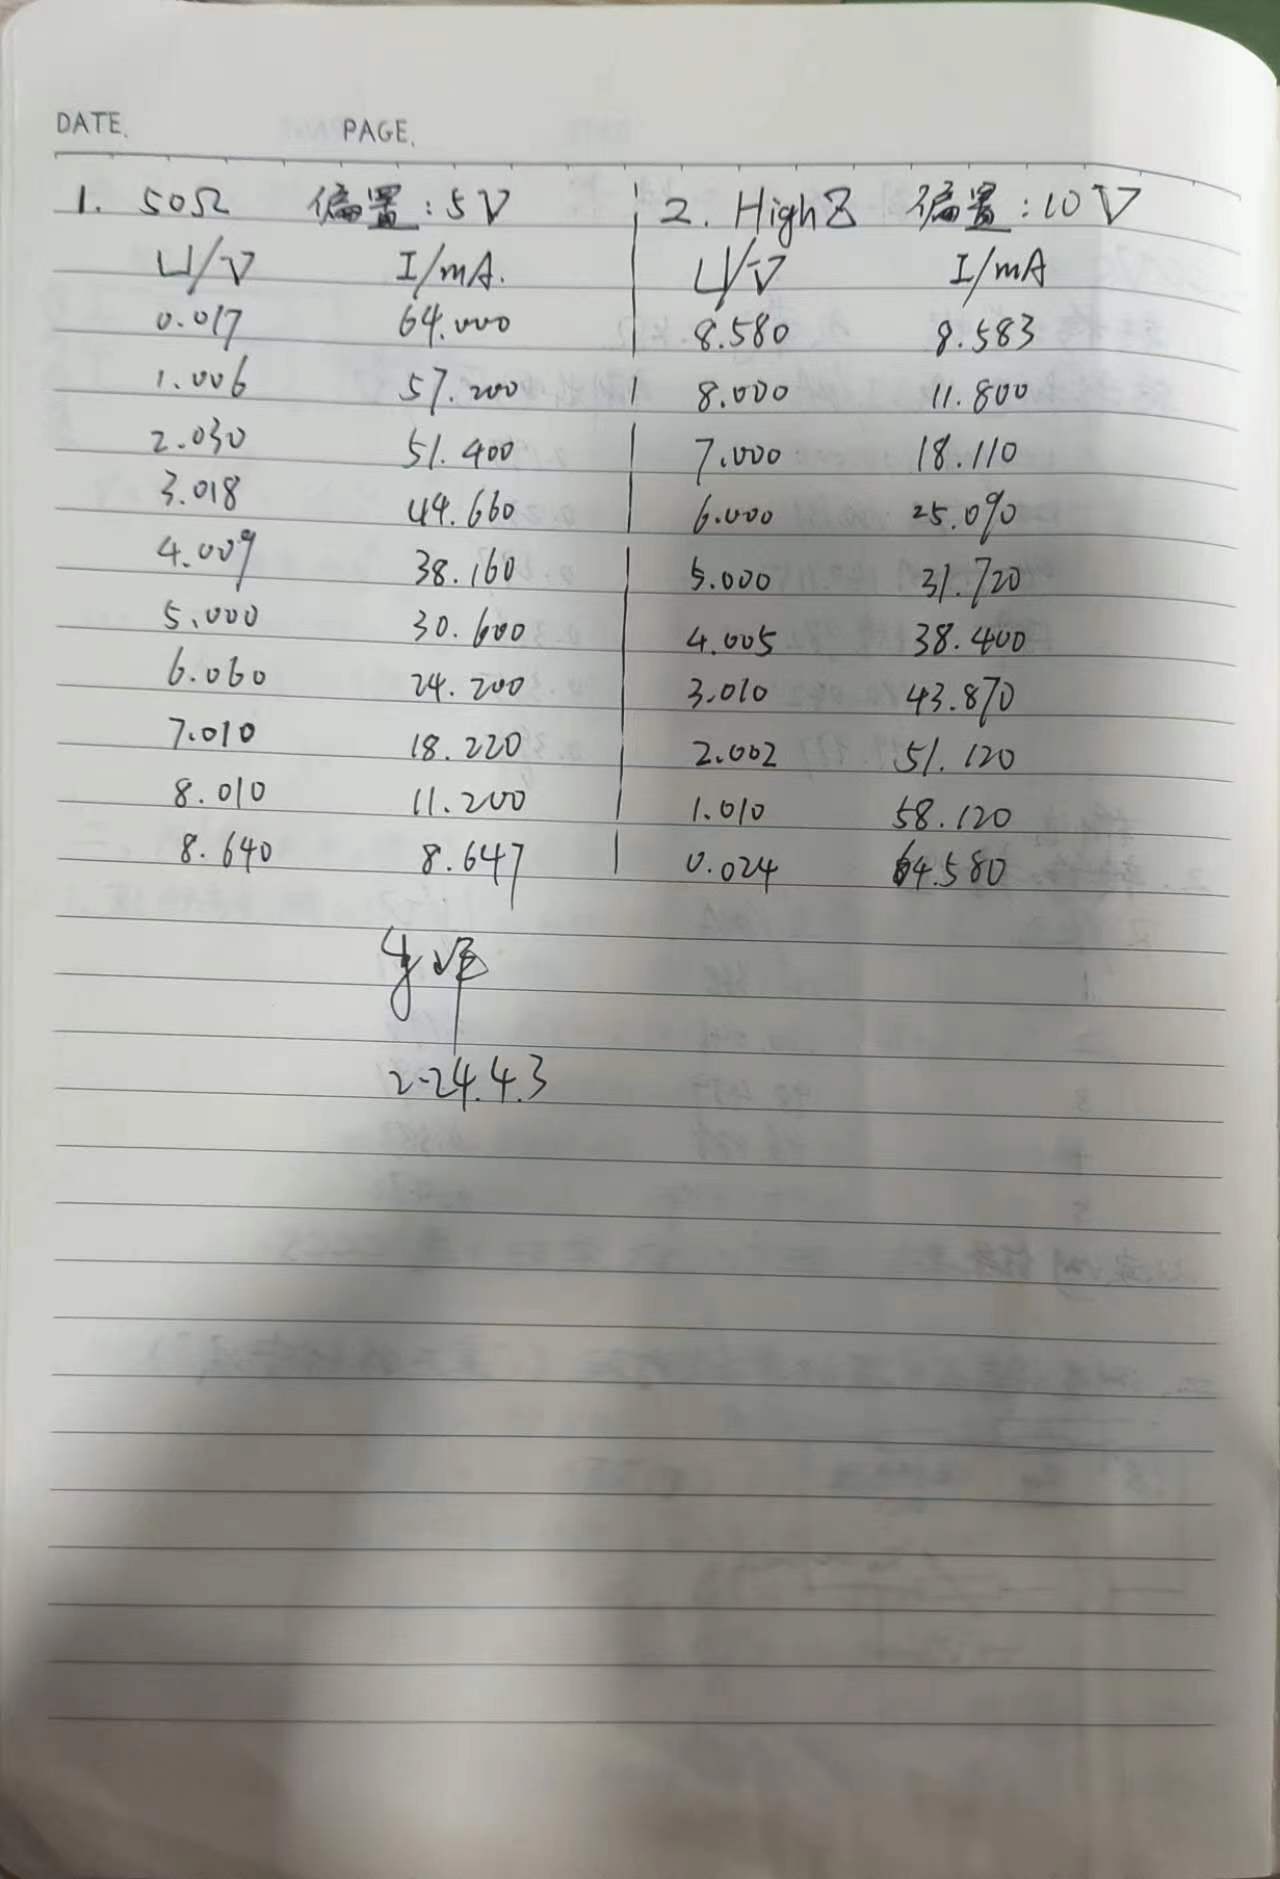 DATE. PAGE.
1. 50Ω 偏置:5V
U/V I/mA.
0.017 64.000
1.006 57.200
2.030 51.400
3.018 44.660
4.009 38.160
5.000 30.600
6.060 24.200
7.010 18.220
8.010 11.200
8.640 8.647
2. High Z 偏置:10V
U/V I/mA
8.580 8.583
8.000 11.800
7.000 18.110
6.000 25.090
5.000 31.720
4.005 38.400
3.010 43.870
2.002 51.120
1.010 58.120
0.024 64.580
2024.4.3